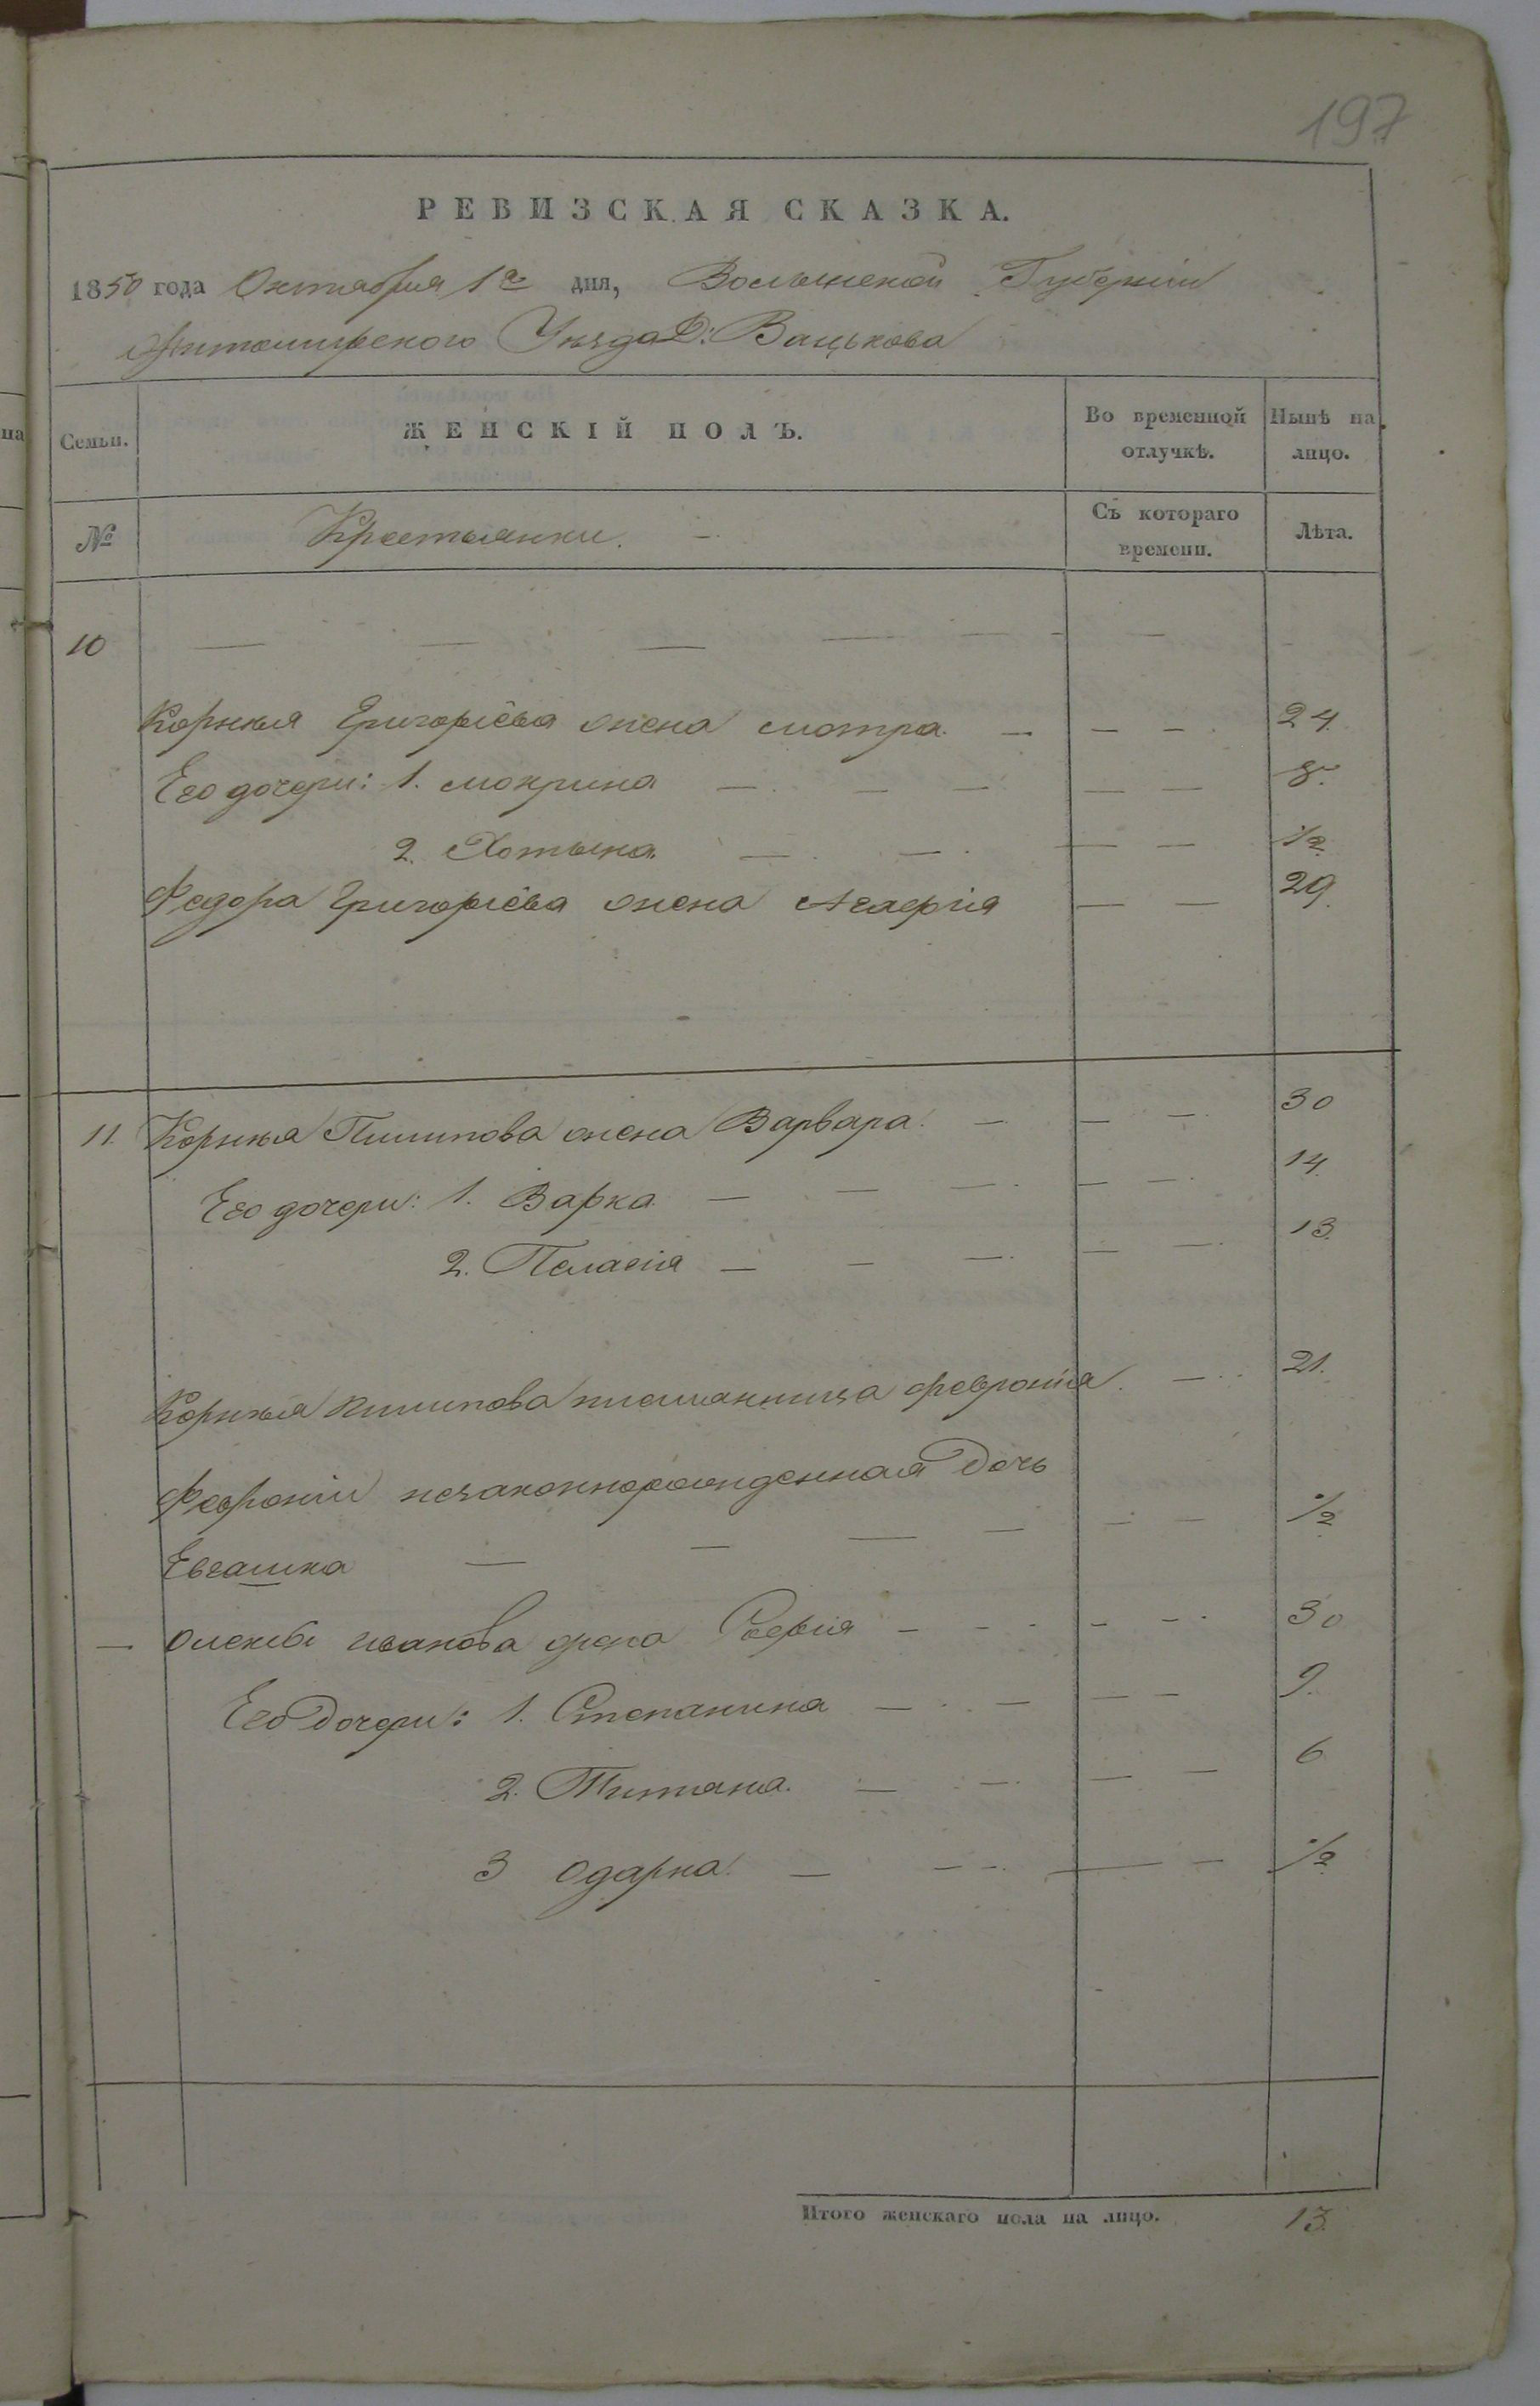 197
РЕВИЗСКАЯ СКАЗКА.
1850 года Октября 1го дня, Волынской Губерніи
Житомирского Уезда Д: Вацькова
Семьи. ЖЕНСКІЙ ПОЛЪ. Во временной отлучкѣ. Нынѣ на лицо.
№ Крестьянки. — Съ котораго времени. Лѣта.
10 — — — — — — —
Корнѣя Григорiева жена мотра — — — 24.
Его дочери: 1. мокрина — — — — — 8
2. Хотына — — — — 1/2
Федора Григорiева жена Агафия — — 29.
11. Корнѣя Пилипова жена Варвара — — — 30
Его дочери: 1. Варка — — — — — 14
2. Пелагiя — — — — — 13.
Корнѣя пилипова племянница феврония — 21.
Февронiи незаконнорожденная Дочь
Евгашка — — — — — — 1/2
— олексы иванова жена София — — — — — 30
Его Дочери: 1. Степанида — — — — 9.
2. Титяна — — — — 6
3 Одарка — — — — — 1/2
Итого женскаго пола на лицо. 13